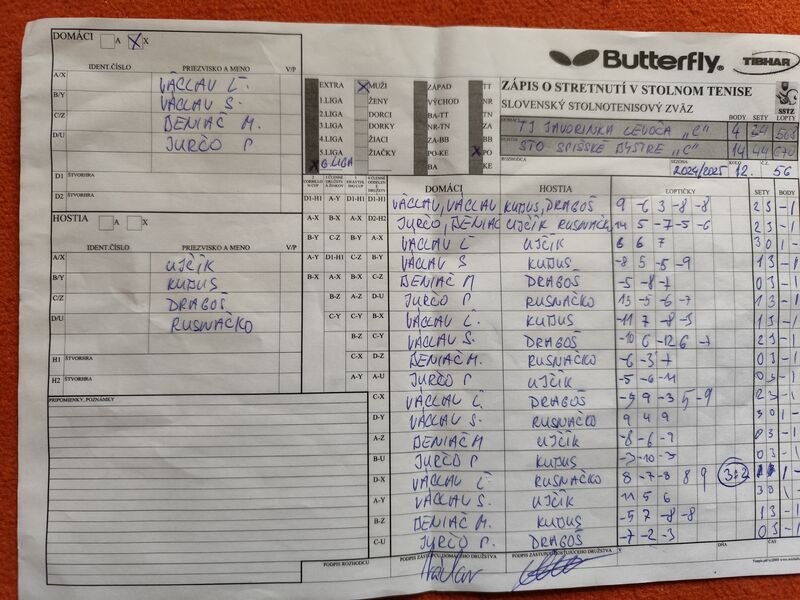 DOMÁCI A X X
IDENT.ČÍSLO PRIEZVISKO A MENO V/P
A/X VÁCLAV Ľ.
B/Y VÁCLAV S.
C/Z BENIAČ M.
D/U JURČO P
D1
D2
HOSTIA A X
IDENT.ČÍSLO PRIEZVISKO A MENO V/P
A/X UJČÍK
B/Y KUDUS
C/Z DRAGOŠ
D/U RUSNAČKO
H1 ŠTVORHRA
H2 ŠTVORHRA
PRIPOMIENKY, POZNÁMKY
Butterfly TIBHAR
ZÁPIS O STRETNUTÍ V STOLNOM TENISE
SLOVENSKÝ STOLNOTENISOVÝ ZVÄZ
SSTZ
BODY SETY LOPTY
EXTRA X MUŽI ZÁPAD TT
1.LIGA ŽENY VÝCHOD NR
2.LIGA DORCI BA-TT TN
3.LIGA DORKY NR-TN ZA
4.LIGA ŽIACI ZA-BB BB
5.LIGA ŽIAČKY PO-KE X PO
X 6.LIGA BA KE
TJ JAVORINKA LEVOČA „C" 4
STO SPIŠSKÉ BYSTRÉ „C" 14 44 670
ROZHODCA SEZÓNA 2024/2025 KOLO 12. Č.Z. 56
DOMÁCI HOSTIA LOPTIČKY SETY BODY
D1-H1 VÁCLAV, VÁCLAV KUDUS, DRAGOŠ 9 -6 3 -8 -8 2 3 -1
D2-H2 JURČO, BENIAČ UJČÍK RUSNAČK 14 5 -7 -5 -6 2 3 -1
A-X VÁCLAV Ľ UJČÍK 6 6 7 3 0 1 -
B-Y VÁCLAV S KUDUS -8 5 -5 -9 1 3 -1
C-Z BENIAČ M DRAGOŠ -5 -8 -7 0 3 -1
D-U JURČO P RUSNAČKO 13 -5 -6 -7 1 3 -1
B-X VÁCLAV Ľ. KUDUS -11 7 -8 -3 1 3 -1
C-Y VÁCLAV S. DRAGOŠ -10 6 -12 6 -7 2 3 -1
D-Z BENIAČ M. RUSNAČKO -6 -3 -7 0 3 -1
A-U JURČO P UJČÍK -5 -6 -11 0 3 -1
C-X VÁCLAV Ľ. DRAGOŠ -9 9 -3 5 -9 2 3 -1
D-Y VÁCLAV S. RUSNAČKO 9 4 9 3 0 1 -
A-Z BENIAČ M UJČÍK -8 -6 -7 0 3 -1
B-U JURČO P KUDUS -10 0 3 -1
D-X VÁCLAV Ľ RUSNAČKO 8 -7 -8 8 9 3:2 1 -
A-Y VÁCLAV S. UJČÍK 11 5 6 3 0 1 -
B-Z BENIAČ M. KUDUS -5 7 -8 -8 1 3 -1
C-U JURČO P DRAGOŠ -7 -2 -3 0 3 -1
PODPIS ROZHODCU PODPIS ZÁSTUPCU DOMÁCEHO DRUŽSTVA PODPIS ZÁSTUPCU HOSŤUJÚCEHO DRUŽSTVA V DŇA ČAS